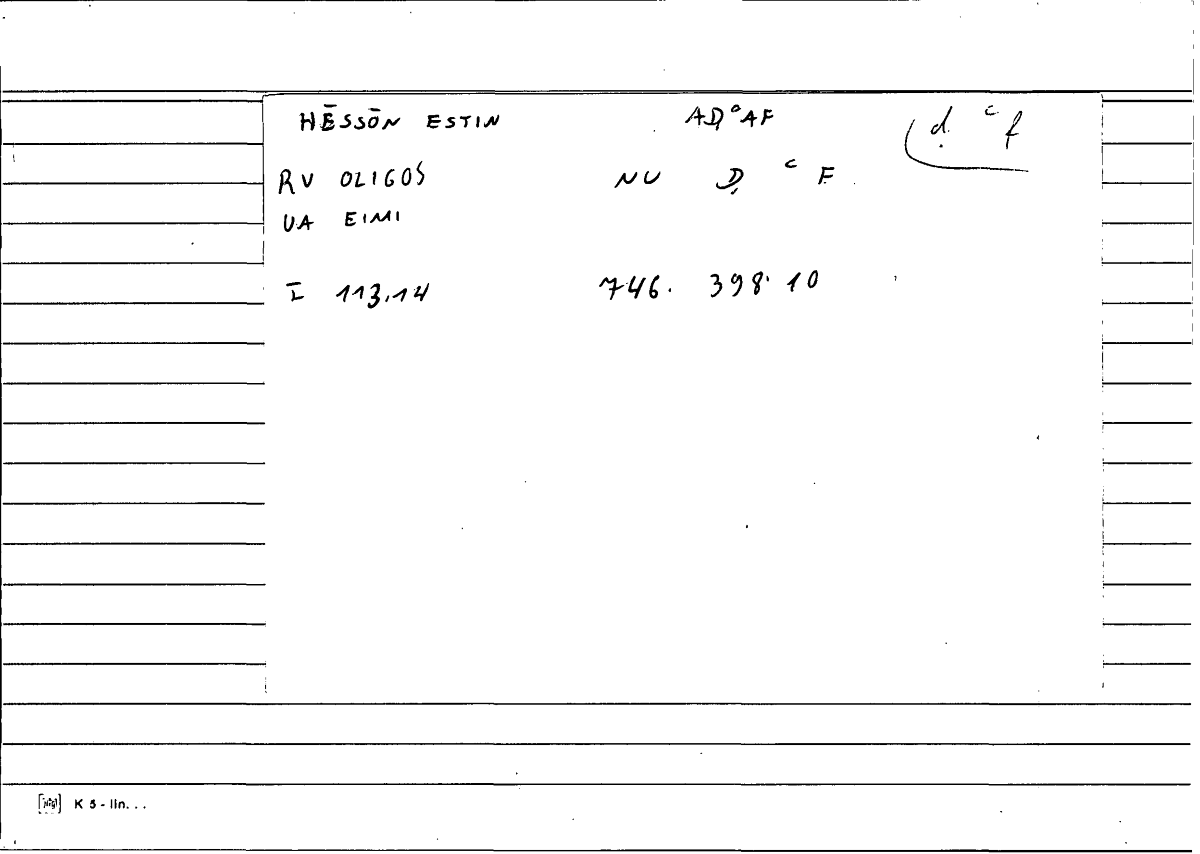 HĒSSŌN ESTIN AḌᶜAF ḍ ᶜ f
RV OLIGOS NU Ḍ ᶜ F
UA EIMI
I 113,14 746. 398.10
K 5 - lin...